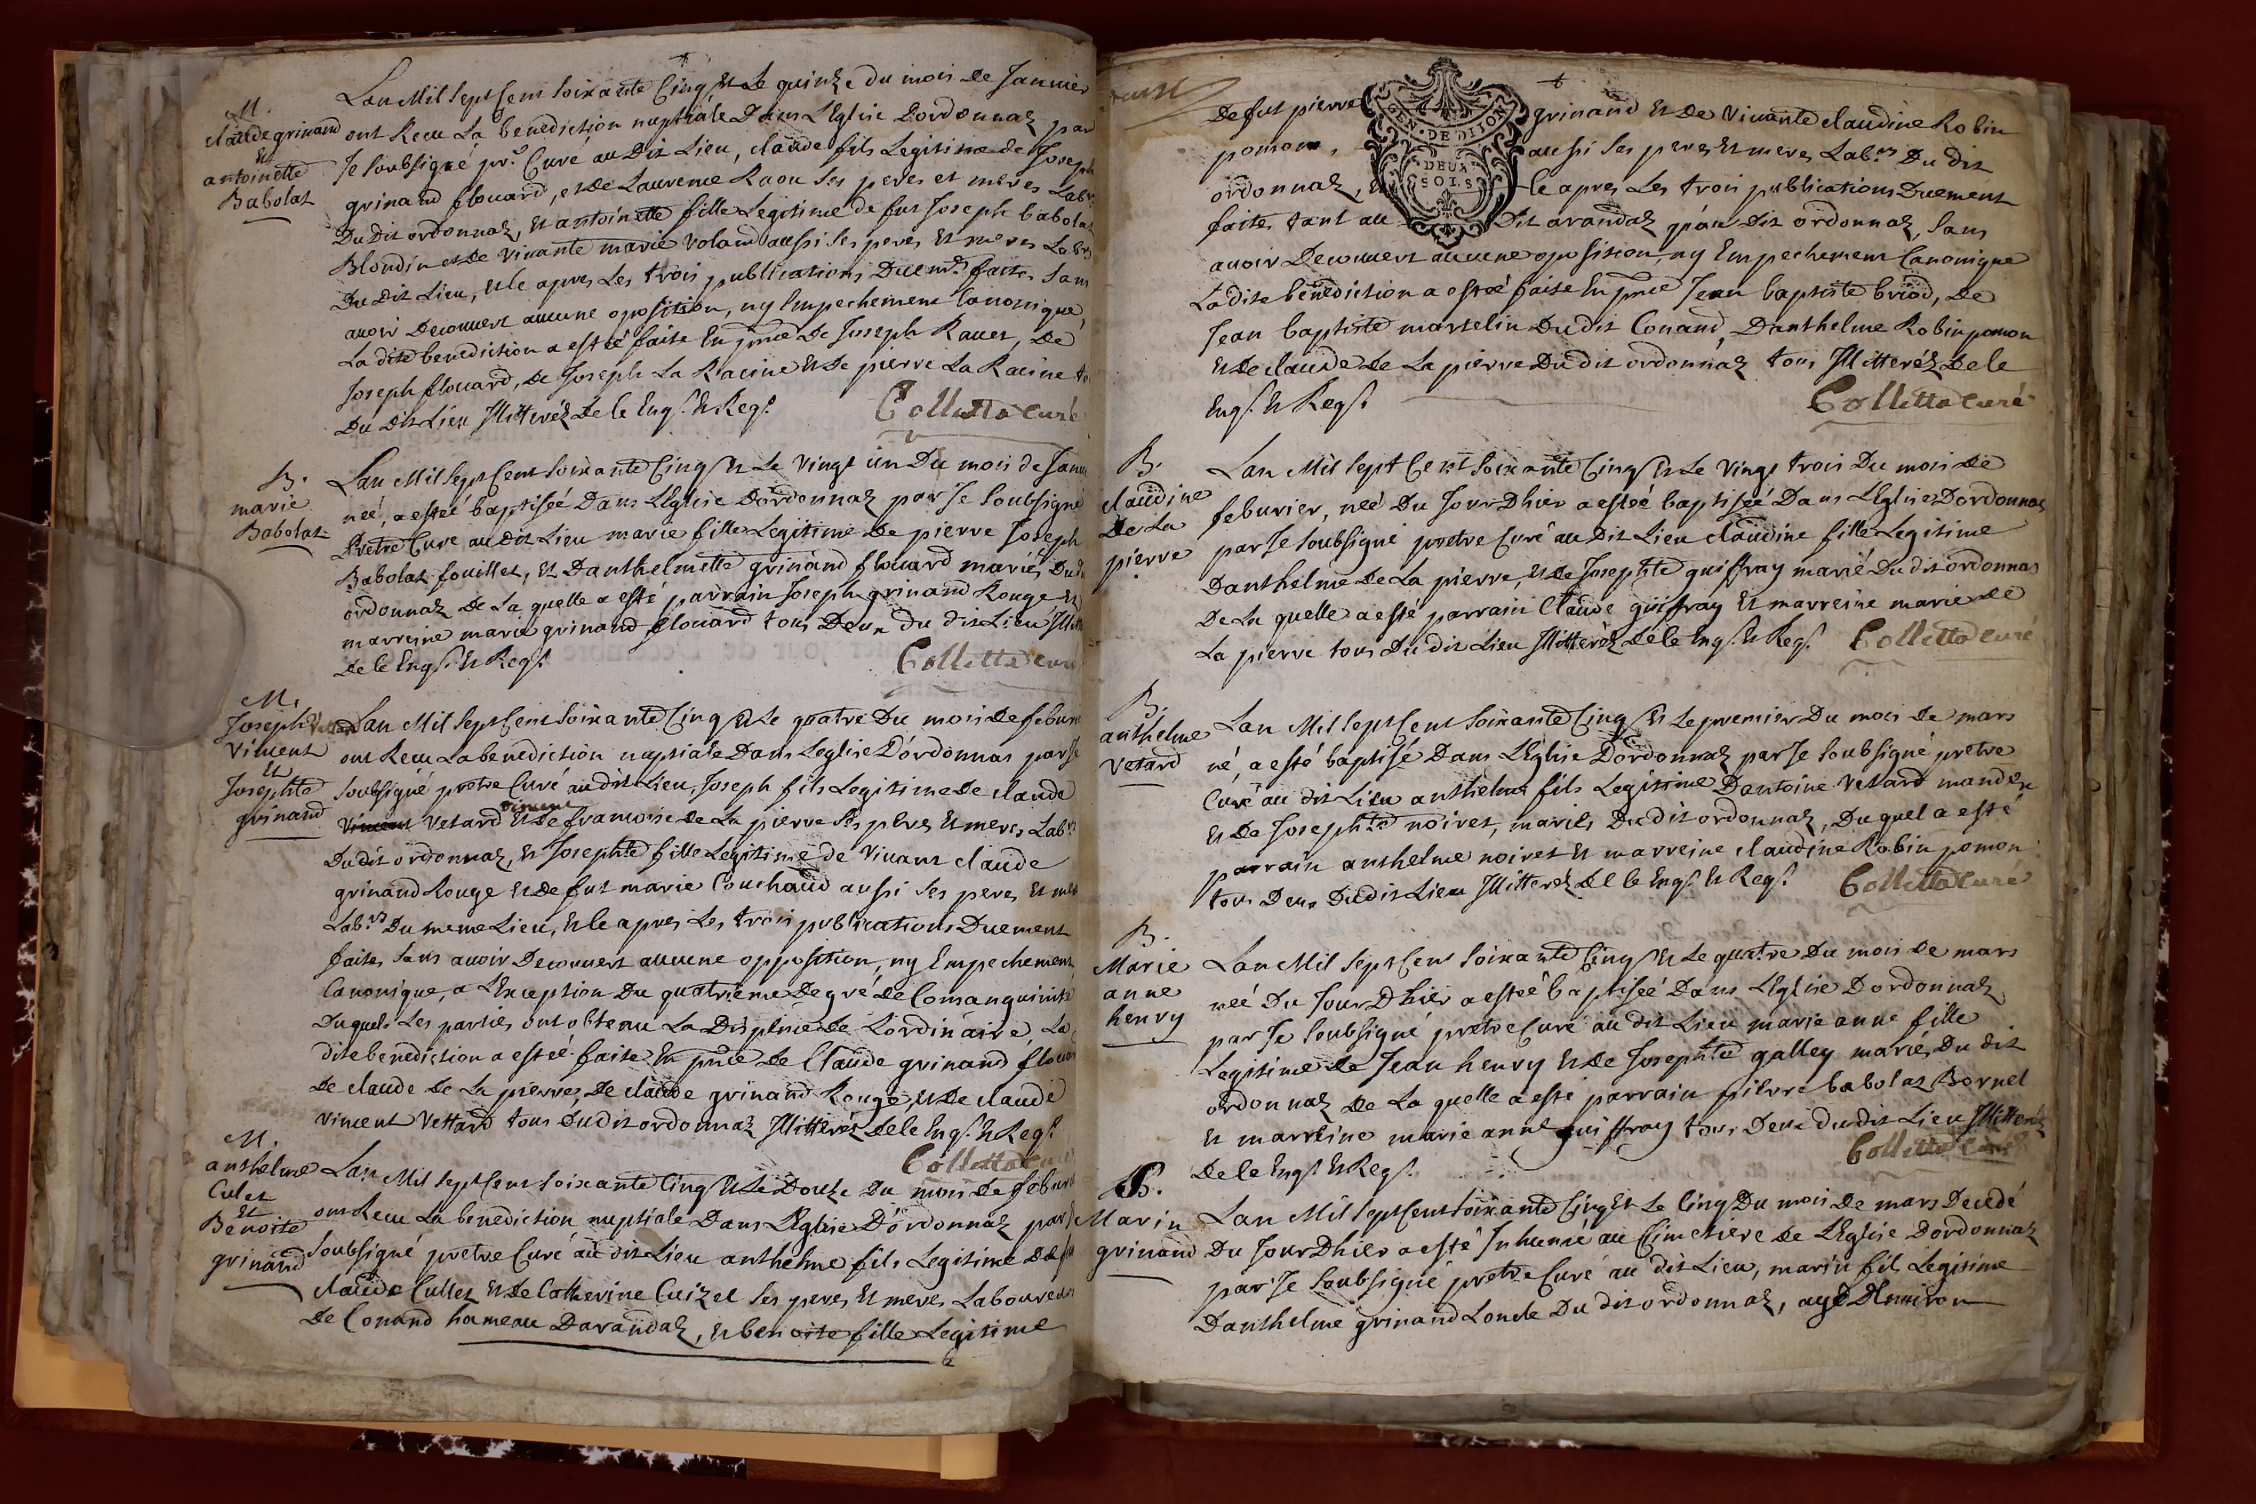 M.
claude grinand
et
antoinette
Babolat
Lan Mil sept Cent soixante Cinq, et Le quinze du mois de Janvier
ont Receu La benediction nuptiale Dans L'Eglise Dordonnaz par
Je soubsigné pr.e Curé au Dit Lieu, claude fils Legitime de Joseph
grinand flouard, et de Laurence Raou ses peres et meres Lab.rs
Du Dit ordonnaz, et antoinette fille Legitime de fut Joseph babolat
Blondin et de Vivante marie Voland aussi ses peres et meres Lab.rs
Du Dit Lieu, et le apres Les trois publications Duem.t faites sans
avoir Decouvert aucune oposition, ny Empechement Canonique,
La dite benediction a esteé faite En pnce De Joseph Ravet, De
Joseph flouard, De Joseph La Racine et De pierre La Racine
Du Dit Lieu Illitteréz De le Enq.s et Reqs.
Colletta curé
B.
marie
Babolat
Lan Mil sept Cent soixante Cinq et Le Vingt un Du mois de
neé, a esteé baptiseé Dans L'Eglise Dordonnaz par Je soubsigné
Pretre Curé au dit Lieu marie fille Legitime De pierre Joseph
Babolat fouillet, et Danthelmette grinand flouard mariés Du
ordonnaz De La quelle a esté parrain Joseph grinand Rouge et
marreine marie grinand flouard tous Deux du dit Lieu
De le Enqs. et Reqs.
Colletta curé
M.
Joseph
Vincent
et
Josephte
grinand
Lan Mil sept Cent soixante Cinq et Le quatre Du mois de
ont Receu La benediction nuptiale Dans Leglise D'ordonnas par Je
soubsigné pretre Curé au dit Lieu, Joseph fils Legitime de claude
vincent
Vincent Vetard et De francoise de La pierre ses peres et meres Lab.rs
Du dit ordonnaz, et Josephte fille Legitime de Vivant claude
grinand Rouge et De fut marie Couchaud aussi ses peres et
Lab.rs Du meme Lieu, et le apres Les trois publications Duement
faites sans avoir Decouvert aucune opposition, ny Empechement
Canonique, a L'Exception Du quatrieme Degré de Consanguinité
Duquel Les parties ont obtenu La Dispense De Lordinaire, La
dite benediction a esteé faite En pnce De Claude grinand
De claude De La pierre, De claude grinand Rouge, et De claude
vincent Vettard tous Du dit ordonnaz Illitteréz De le Enqs. et Reqs.
Colletta
M.
anthelme
Culet
et
Benoite
grinand
Lan Mil sept Cent soixante Cinq et Le Douze Du mois De
ont Receu La benediction nuptiale Dans L'Eglise D'ordonnaz par
soubsigné pretre Curé au dit Lieu anthelme fils Legitime De
claude Cullet et De Catherine Cuizel ses peres et meres Laboureurs
De Conand hameau Darandaz, et benoite fille Legitime
De fut pierre grinand et De Vivante claudine Robin
pomon, aussi ses peres et meres Lab.rs Du dit
ordonnaz, et le apres Les trois publications Duement
faites tant au Dit arandaz qu'au Dit ordonnaz, sans
avoir Decouvert aucune oposition, ny Empechement Canonique
La dite benediction a esteé faite En pnce Jean baptiste briod, De
Jean baptiste marselin Du dit Conand, Danthelme Robin pomon
et De claude De La pierre Du dit ordonnaz tous Illitteréz De le
Enqs. et Reqs.
Colletta curé
GEN. DE DIJON
DEUX
SOLS
B.
claudine
De La
pierre
Lan Mil sept Cent soixante Cinq et Le Vingt trois Du mois De
feburier, neé Du Jour Dhier a esteé baptiseé Dans L'Eglise Dordonnas
par Je soubsigné pretre Curé au Dit Lieu claudine fille Legitime
Danthelme De La pierre, et de Josephte guiffray marié Du dit ordonnas
De La quelle a esté parrain Claude guiffray et marreine marie De
La pierre tous Du dit Lieu Illitteréz De le Enqs. et Reqs.
Colletta curé
B.
anthelme
Vetard
Lan Mil sept Cent soixante Cinq et Le premier Du mois De mars
né, a esté baptisé Dans L'Eglise Dordonnaz par Je soubsigné pretre
Curé au dit Lieu anthelme fils Legitime Dantoine Vetard
et De Josephte noiret, mariés Du dit ordonnaz, Du quel a esté
parrain anthelme noiret et marreine claudine Robin pomon
tous Deux Du dit Lieu Illitteréz De le Enqs. et Reqs.
Colletta curé
B.
Marie
anne
henry
Lan Mil sept Cent soixante Cinq et Le quatre Du mois De mars
neé Du Jour Dhier a esteé baptiseé Dans L'Eglise Dordonnaz
par Je soubsigné pretre Curé au dit Lieu marie anne fille
Legitime De Jean henry et De Josephte galley marié Du dit
ordonnaz De La quelle a esté parrain pierre babolat Bornet
et marreine marie anne guiffray tous Deux du dit Lieu Illitteréz
De le Enqs. et Reqs.
Colletta curé
S.
Marin
grinand
Lan Mil sept Cent soixante Cinq et Le Cinq Du mois De mars Decedé
Du Jour Dhier a esté Inhumé au Cimetiere de L'Eglise Dordonnaz
par Je soubsigné pretre Curé au dit Lieu, marin fils Legitime
Danthelme grinand Loncle Du dit ordonnaz, agé D'Environ